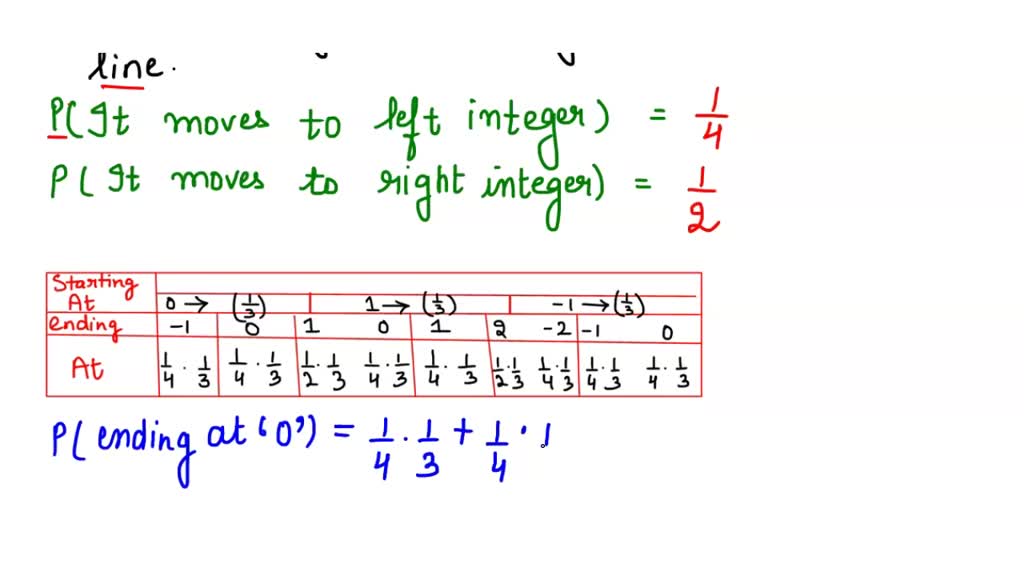 line.
P(It moves to left integer) = 1/4
P(It moves to right integer) = 1/2
Starting At 0 → (1/3) 1 → (1/3) -1 → (1/3)
ending -1 0 1 0 1 2 -2 -1 0
At 1/4 · 1/3 1/4 · 1/3 1/2 · 1/3 1/4 · 1/3 1/4 · 1/3 1/2 · 1/3 1/4 · 1/3 1/4 · 1/3 1/4 · 1/3
P(ending at '0') = 1/4 · 1/3 + 1/4 · 1